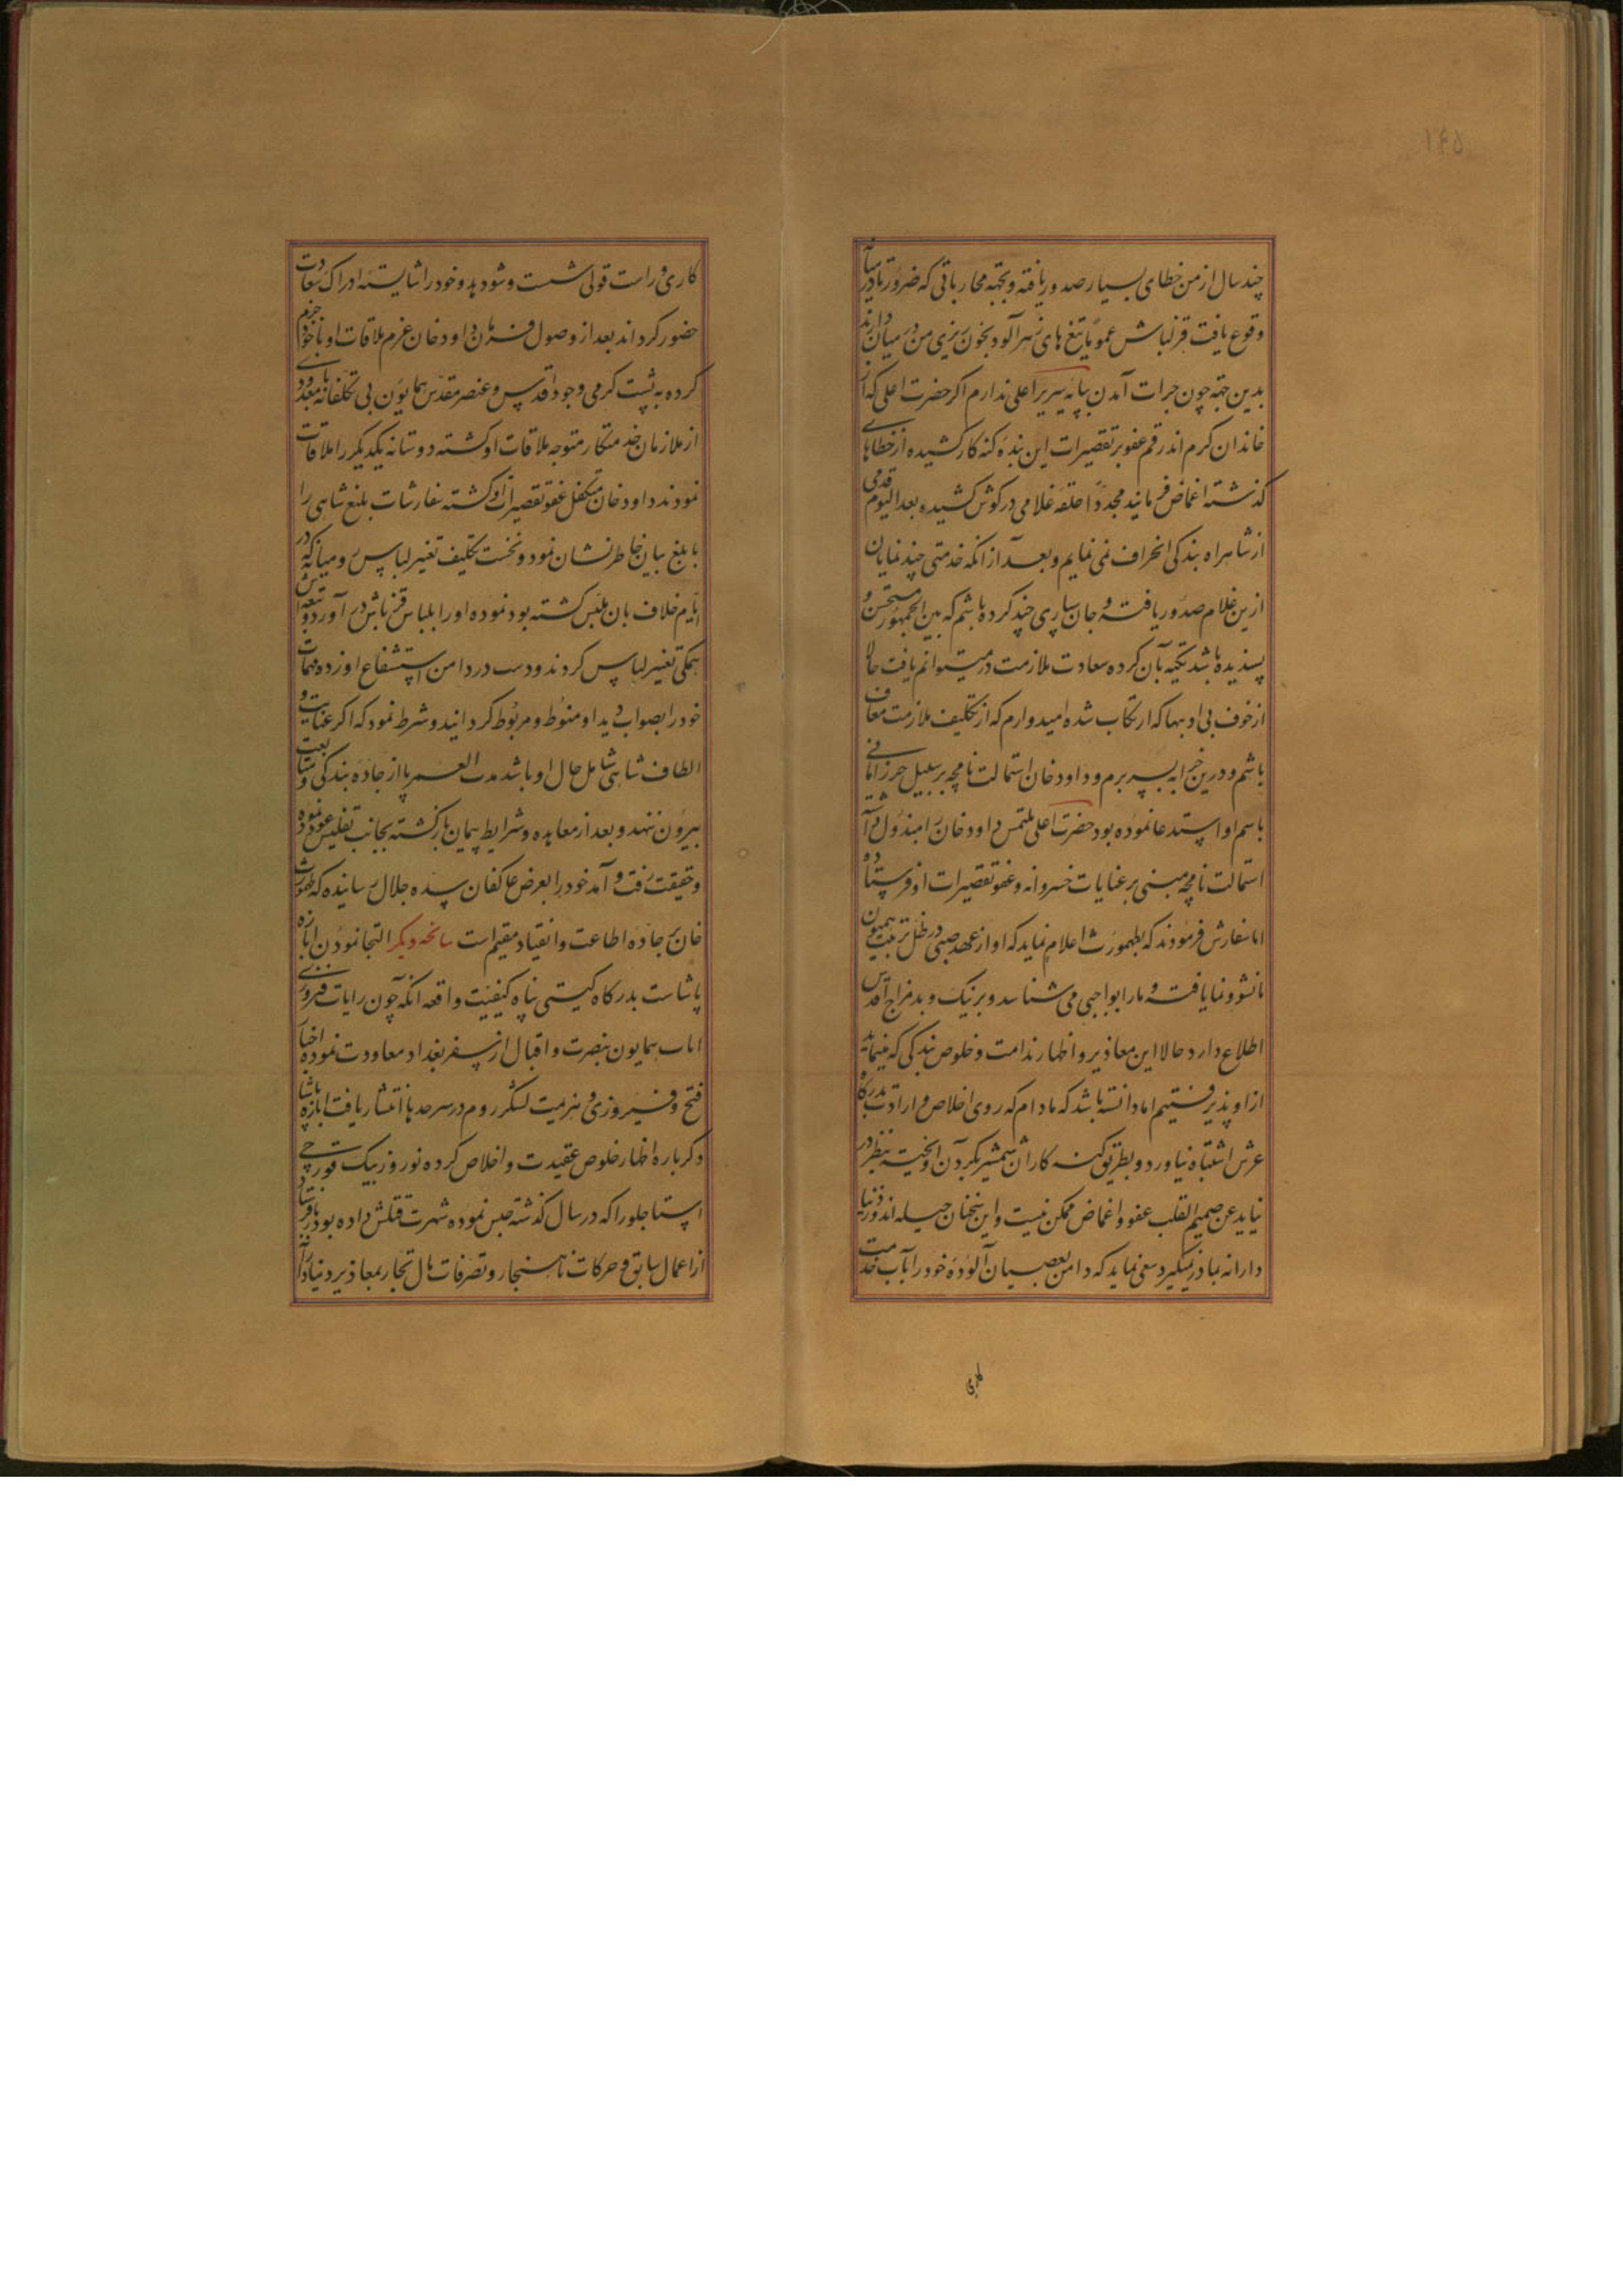 ۱۴۵
چند سال از من خطای بسیار صدور یافته و بجهة محارباتی که ضرورتا در میانه
وقوع یافت قزلباش عموما تیغ های زهرآلود بخون ریزی من در میان دارند
بدین جهة چون جرات آمدن بپایه سریر اعلی ندارم اکر حضرت اعلی که از
خاندان کرم اند رقم عفو بر تقصیرات این بنده کنه کار کشیده از خطاهای
کذشته اغماض فرمایند مجددا حلقه غلامی در کوش کشیده بعد الیوم قدمی
از شاهراه بندکی انحراف نمی نمایم و بعد از آنکه خدمتی چند نمایان
ازین غلام صدور یافته و جان سپاری چند کرده باشم که بین الجمهور مستحسن و
پسندیده باشد تکیه بآن کرده سعادت ملازمت در میتوانم یافت حالا
از خوف بی ادبیها که ارتکاب شده امیدوارم که از تکلیف ملازمت معاف
باشم و درین خرابه بسر برم و داود خان استمالت نامچه بر سبیل حرز امانی
باسم او استدعا نموده بود حضرت اعلی ملتمس داود خان را مبذول داشته
استمالت نامچه مبنی بر عنایات خسروانه و عفو تقصیرات او فرستاده
اما سفارش فرمودند که بطهمورث اعلام نماید که او از عهد صبی در ظل تربیت همیون
ما نشو و نما یافته و ما را بواجبی می شناسد و بر نیک و بد مزاج اقدس
اطلاع دارد حالا این معاذیر و اظهار ندامت و خلوص بندکی که مینماید
ازو پذیرفتیم اما دانسته باشد که مادام که روی اخلاص و ارادت بدرکاه
عرش اشتباه نیاورد و بطریق کنه کاران شمشیر بکردن آویخته بنظر در
نیاید عن صمیم القلب عفو و اغماض ممکن نیست و این سخنان حیله اندوز دنیا
دارانه بما در نمیکیرد سعی نماید که دامن بعصیان آلوده خود را بآب خدمت
کاری
کاری و راست قولی شست و شو دهد و خود را شایسته ادراک سعادت
حضور کرداند بعد از وصول فرمان داود خان عزم ملاقات او با خود جزم
کرده به پشت کرمی وجود اقدس و عنصر مقدس همایون بی تکلفانه با معدودی
از ملازمان خدمتکار متوجه ملاقات او کشته دوستانه یکدیکر را ملاقات
نمودند داود خان متکفل عفو تقصیرات او کشته سفارشات بلیغ شاهی را
بابلغ بیان خاطرنشان نمود و نخست تکلیف تغییر لباس رومیانه که در
ایام خلاف بآن ملبس کشته بود نموده او را بلباس قزلباش در آورد و تبعه اش
همکی تغییر لباس کردند و دست در دامن استشفاع او زده مهمات
خود را بصواب دید او منوط و مربوط کردانید و شرط نمود که اکر عنایت و
الطاف شاهی شامل حال او باشد مدت العمر پا از جاده بندکی و متابعت
بیرون ننهد و بعد از معاهده و شرایط پیمان بازکشته بجانب تفلیس عود نموده
و حقیقت رفت و آمد خود را بعرض عاکفان سده جلال رسانیده که طهمورث
خان بر جاده اطاعت و انقیاد مقیم است سانحه دیکر التجا نمودن ابازه
پاشاست بدرکاه کیتی پناه کیفیت واقعه آنکه چون رایات فیروزی
اماب همایون بنصرت و اقبال از سفر بغداد معاودت نموده اخبار
فتح و فیروزی و هزیمت لشکر روم در سرحدها انتشار یافت ابازه پاشا
دکرباره اظهار خلوص عقیدت و اخلاص کرده نوروز بیک قورچی
استاجلو را که در سال کذشته حبس نموده شهرت قتلش داده بود
از اعمال سابق و حرکات ناهنجار و تصرفات مال تجار بمعاذیر دنیادارانه